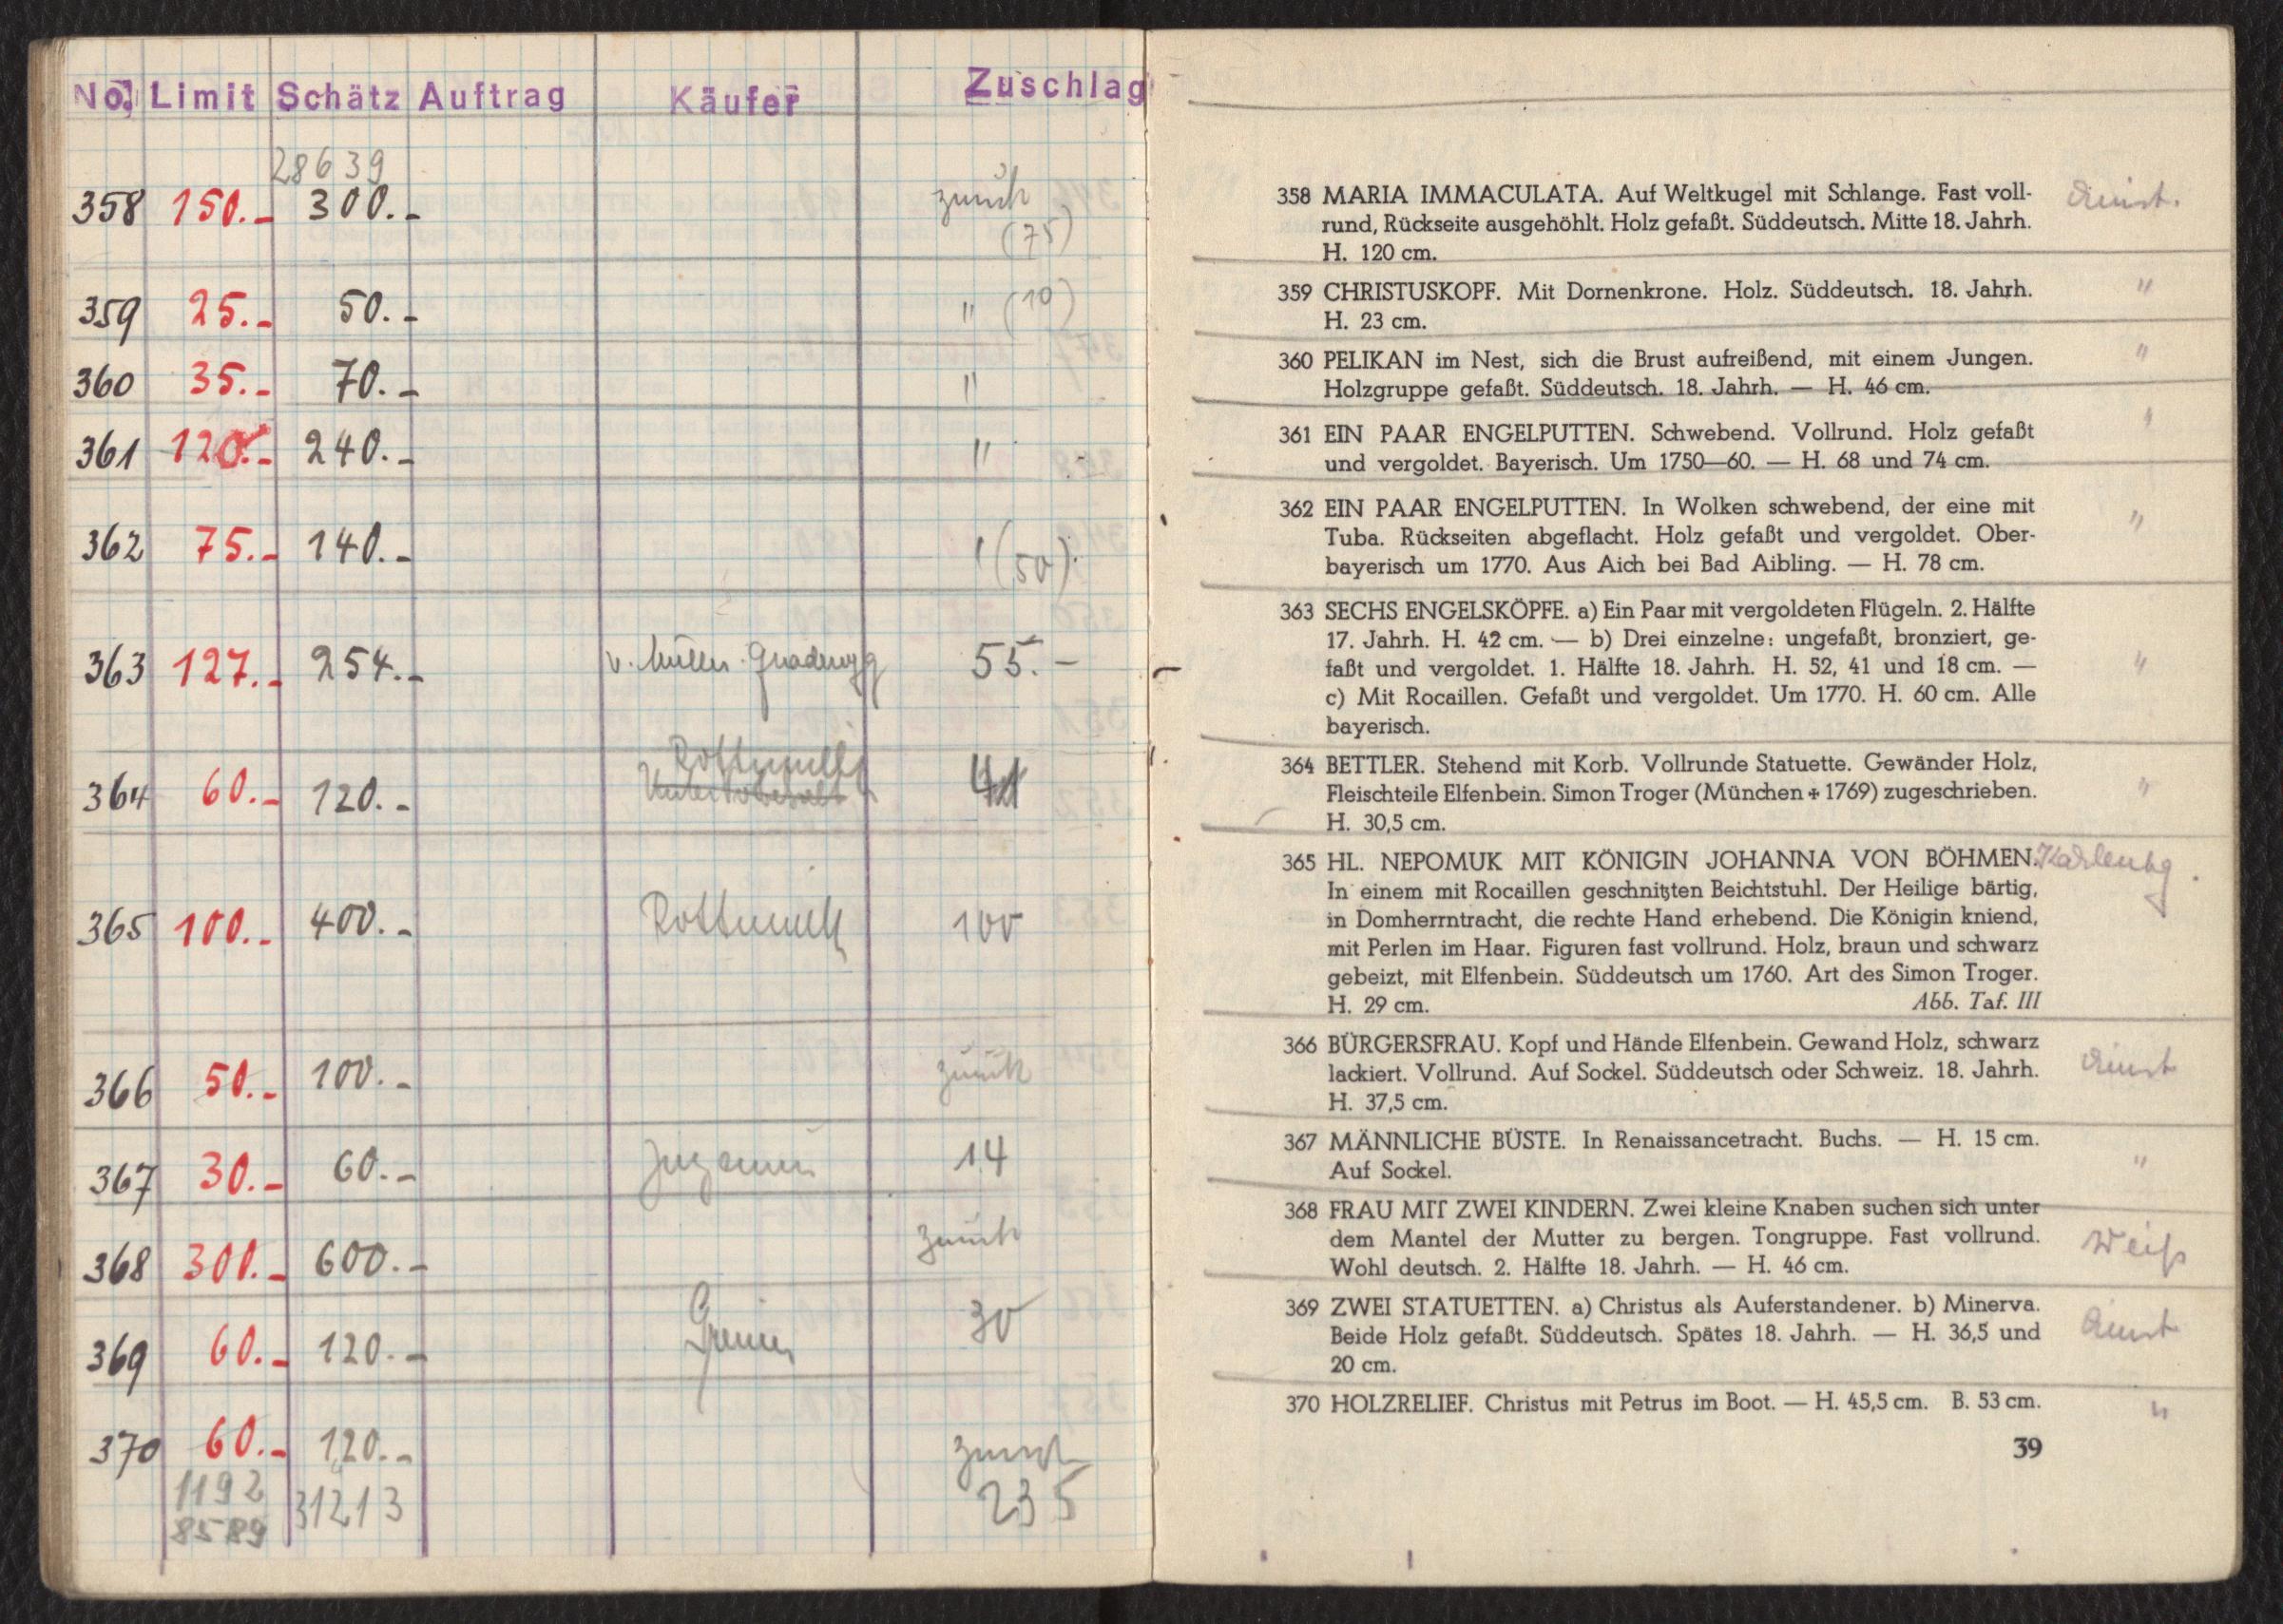 No. Limit Schätz Auftrag Käufer Zuschlag
28639
358 150.- 300.- zurück
(75)
359 25.- 50.- " (10)
360 35.- 70.- "
361 120.- 240.- "
362 75.- 140.- " (50)
363 127.- 254.- v. Müller 55.-
364 60.- 120.-
365 100.- 400.- 100
366 50.- 100.- zurück
367 30.- 60.- 14
368 300.- 600.- zurück
369 60.- 120.- 30
370 60.- 120.- zurück
1192 31213 235
8589
358 MARIA IMMACULATA. Auf Weltkugel mit Schlange. Fast voll-
rund, Rückseite ausgehöhlt. Holz gefaßt. Süddeutsch. Mitte 18. Jahrh.
H. 120 cm.
359 CHRISTUSKOPF. Mit Dornenkrone. Holz. Süddeutsch. 18. Jahrh. "
H. 23 cm.
360 PELIKAN im Nest, sich die Brust aufreißend, mit einem Jungen. "
Holzgruppe gefaßt. Süddeutsch. 18. Jahrh. — H. 46 cm.
361 EIN PAAR ENGELPUTTEN. Schwebend. Vollrund. Holz gefaßt "
und vergoldet. Bayerisch. Um 1750—60. — H. 68 und 74 cm.
362 EIN PAAR ENGELPUTTEN. In Wolken schwebend, der eine mit "
Tuba. Rückseiten abgeflacht. Holz gefaßt und vergoldet. Ober-
bayerisch um 1770. Aus Aich bei Bad Aibling. — H. 78 cm.
363 SECHS ENGELSKÖPFE. a) Ein Paar mit vergoldeten Flügeln. 2. Hälfte
17. Jahrh. H. 42 cm. — b) Drei einzelne: ungefaßt, bronziert, ge-
faßt und vergoldet. 1. Hälfte 18. Jahrh. H. 52, 41 und 18 cm. — "
c) Mit Rocaillen. Gefaßt und vergoldet. Um 1770. H. 60 cm. Alle
bayerisch.
364 BETTLER. Stehend mit Korb. Vollrunde Statuette. Gewänder Holz,
Fleischteile Elfenbein. Simon Troger (München + 1769) zugeschrieben. "
H. 30,5 cm.
365 HL. NEPOMUK MIT KÖNIGIN JOHANNA VON BÖHMEN.
In einem mit Rocaillen geschnitzten Beichtstuhl. Der Heilige bärtig,
in Domherrntracht, die rechte Hand erhebend. Die Königin kniend,
mit Perlen im Haar. Figuren fast vollrund. Holz, braun und schwarz
gebeizt, mit Elfenbein. Süddeutsch um 1760. Art des Simon Troger.
H. 29 cm. Abb. Taf. III
366 BÜRGERSFRAU. Kopf und Hände Elfenbein. Gewand Holz, schwarz
lackiert. Vollrund. Auf Sockel. Süddeutsch oder Schweiz. 18. Jahrh.
H. 37,5 cm.
367 MÄNNLICHE BÜSTE. In Renaissancetracht. Buchs. — H. 15 cm. "
Auf Sockel.
368 FRAU MIT ZWEI KINDERN. Zwei kleine Knaben suchen sich unter
dem Mantel der Mutter zu bergen. Tongruppe. Fast vollrund. Weiß
Wohl deutsch. 2. Hälfte 18. Jahrh. — H. 46 cm.
369 ZWEI STATUETTEN. a) Christus als Auferstandener. b) Minerva.
Beide Holz gefaßt. Süddeutsch. Spätes 18. Jahrh. — H. 36,5 und
20 cm.
370 HOLZRELIEF. Christus mit Petrus im Boot. — H. 45,5 cm. B. 53 cm. "
39